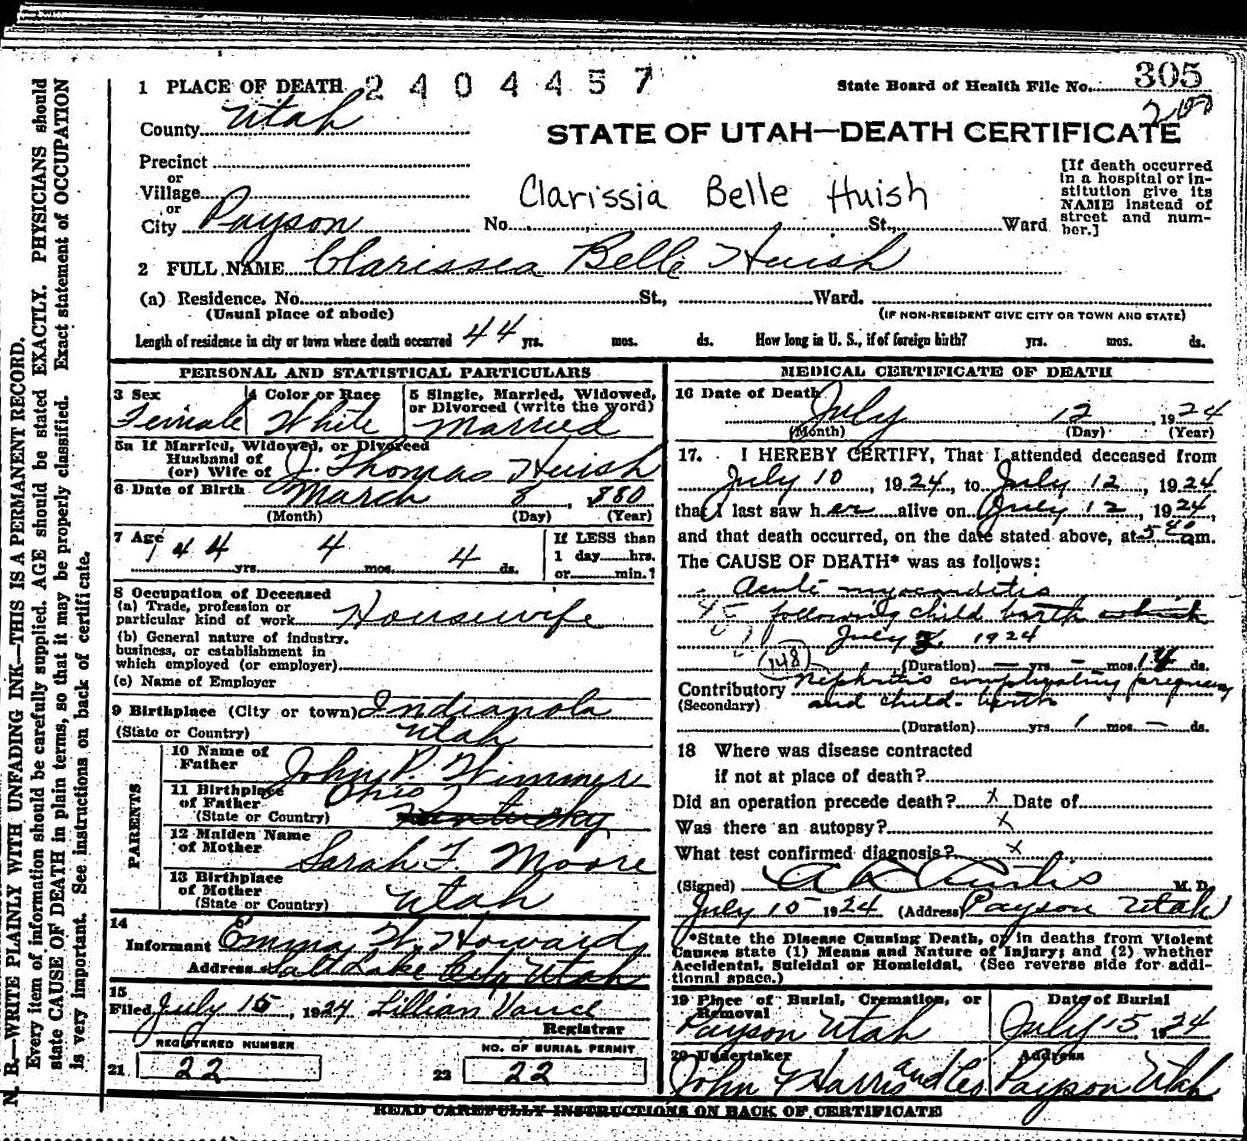 305
1 PLACE OF DEATH 2404457 State Board of Health File No.
County Utah
STATE OF UTAH—DEATH CERTIFICATE
Precinct
or
Village
or
City Payson No. St., Ward
Clarissia Belle Huish
[If death occurred
in a hospital or in-
stitution give its
NAME instead of
street and num-
ber.]
2 FULL NAME Clarissia Belle Huish
(a) Residence. No. St., Ward.
(Usual place of abode) (IF NON-RESIDENT GIVE CITY OR TOWN AND STATE)
Length of residence in city or town where death occurred 44 yrs. mos. ds. How long in U. S., if of foreign birth? yrs. mos. ds.
PERSONAL AND STATISTICAL PARTICULARS
3 Sex 4 Color or Race 5 Single, Married, Widowed,
or Divorced (write the word)
Female White Married
5a If Married, Widowed, or Divorced
Husband of
(or) Wife of J. Thomas Huish
6 Date of Birth March 8, 1880
(Month) (Day) (Year)
7 Age 44 yrs. 4 mos. 4 ds.
If LESS than
1 day hrs.
or min.?
8 Occupation of Deceased
(a) Trade, profession or
particular kind of work Housewife
(b) General nature of industry,
business, or establishment in
which employed (or employer)
(c) Name of Employer
9 Birthplace (City or town) Indianola
(State or Country) Utah
PARENTS
10 Name of
Father John P. Wimmer
11 Birthplace
of Father Ohio
(State or Country) Kentucky
12 Maiden Name
of Mother Sarah F. Moore
13 Birthplace
of Mother
(State or Country) Utah
14
Informant Emma W. Howard
Address Salt Lake City Utah
15
Filed July 15, 1924 Lillian Vance
Registrar
REGISTERED NUMBER NO. OF BURIAL PERMIT
21 22 22 22
MEDICAL CERTIFICATE OF DEATH
16 Date of Death July 12, 1924
(Month) (Day) (Year)
17. I HEREBY CERTIFY, That I attended deceased from
July 10, 1924, to July 12, 1924
that I last saw her alive on July 12, 1924,
and that death occurred, on the date stated above, at 5 40 am.
The CAUSE OF DEATH* was as follows:
Acute myocarditis
following child birth which
July 1924
148 (Duration) — yrs. — mos. 14 ds.
Contributory Nephritis complicating pregnancy
(Secondary) and child-birth
(Duration) yrs. 1 mos. — ds.
18 Where was disease contracted
if not at place of death?
Did an operation precede death? x Date of
Was there an autopsy? x
What test confirmed diagnosis? x
(Signed) A L Curtis M. D.
July 15 1924 (Address) Payson Utah
*State the Disease Causing Death, or in deaths from Violent
Causes state (1) Means and Nature of Injury; and (2) whether
Accidental, Suicidal or Homicidal. (See reverse side for addi-
tional space.)
19 Place of Burial, Cremation, or
Removal Date of Burial
Payson Utah July 15 1924
20 Undertaker Address
John F Harris and Co Payson Utah
READ CAREFULLY INSTRUCTIONS ON BACK OF CERTIFICATE
N. B.—WRITE PLAINLY WITH UNFADING INK—THIS IS A PERMANENT RECORD.
Every item of information should be carefully supplied. AGE should be stated EXACTLY. PHYSICIANS should
state CAUSE OF DEATH in plain terms, so that it may be properly classified. Exact statement of OCCUPATION
is very important. See instructions on back of certificate.